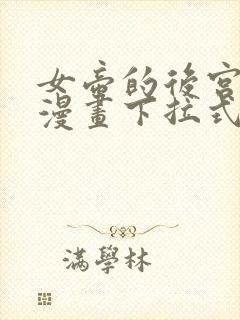 女帝的後宮
漫畫下拉式
滿學林